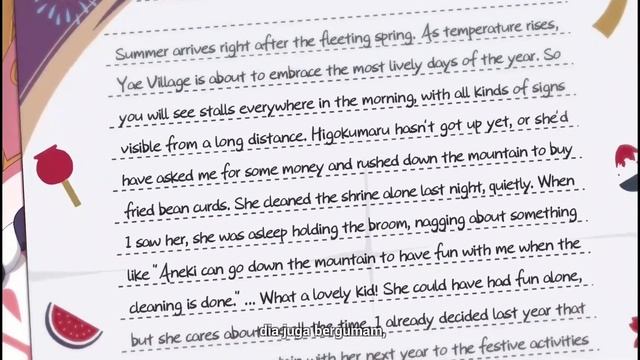 Summer arrives right after the fleeting spring. As temperature rises,
Yae Village is about to embrace the most lively days of the year. So
you will see stalls everywhere in the morning, with all kinds of signs
visible from a long distance. Higokumaru hasn't got up yet, or she'd
have asked me for some money and rushed down the mountain to buy
fried bean curds. She cleaned the shrine alone last night, quietly. When
I saw her, she was asleep holding the broom, nagging about something
like "Aneki can go down the mountain to have fun with me when the
cleaning is done." ... What a lovely kid! She could have had fun alone,
but she cares about the time. I already decided last year that
with her next year to the festive activities
dia juga bergumam,